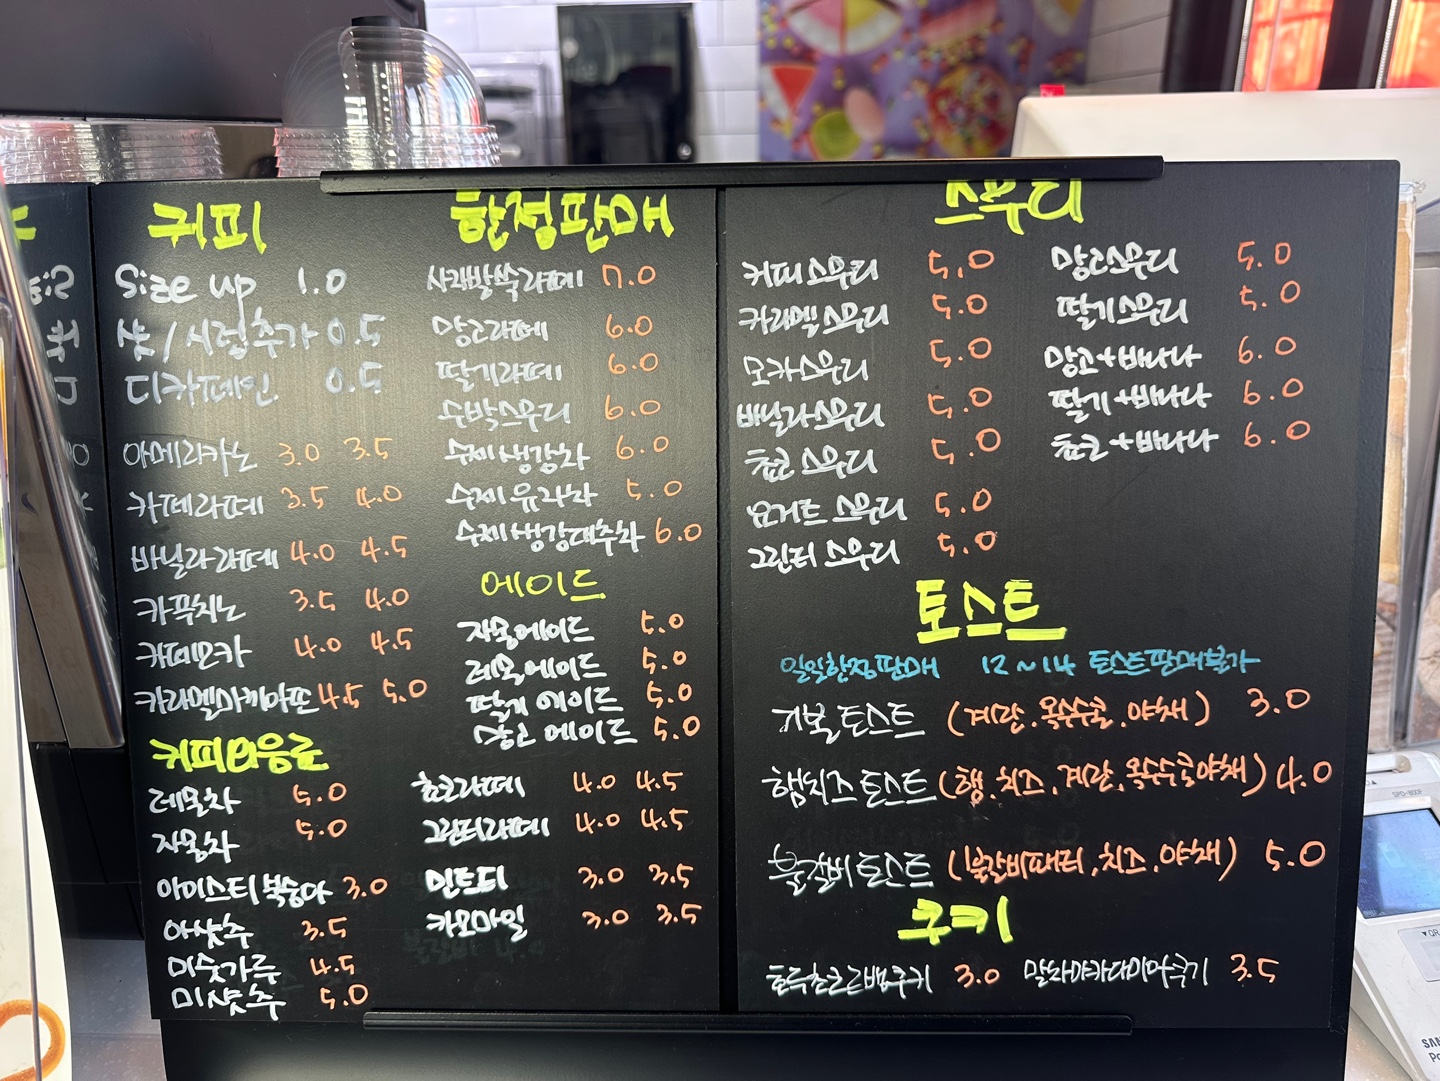 커피
Size up 1.0
샷/시럽추가 0.5
디카페인 0.5
아메리카노 3.0 3.5
카페라떼 3.5 4.0
바닐라라떼 4.0 4.5
카푹치노 3.5 4.0
카페모카 4.0 4.5
카라멜마끼아또 4.5 5.0
커피외음료
레몬차 5.0
자몽차 5.0
아이스티 복숭아 3.0
아샷추 3.5
미숫가루 4.5
미샷추 5.0
한정판매
쑥라떼 7.0
망고라떼 6.0
딸기라떼 6.0
수박스무디 6.0
수제생강차 6.0
수제유자차 5.0
수제생강대추차 6.0
에이드
자몽에이드 5.0
레몬에이드 5.0
딸기에이드 5.0
망고에이드 5.0
쵸코라떼 4.0 4.5
그린티라떼 4.0 4.5
민트티 3.0 3.5
카모마일 3.0 3.5
스무디
커피스무디 5.0
카라멜스무디 5.0
모카스무디 5.0
바닐라스무디 5.0
쵸코스무디 5.0
요거트스무디 5.0
그린티스무디 5.0
망고스무디 5.0
딸기스무디 5.0
망고+바나나 6.0
딸기+바나나 6.0
쵸코+바나나 6.0
토스트
일일한정판매 12~14 토스트판매불가
기본토스트 (계란.옥수수콘.야채) 3.0
햄치즈토스트 (햄.치즈.계란.옥수수콘야채) 4.0
불갈비토스트 (불갈비패티,치즈.야채) 5.0
쿠키
3.0
3.5